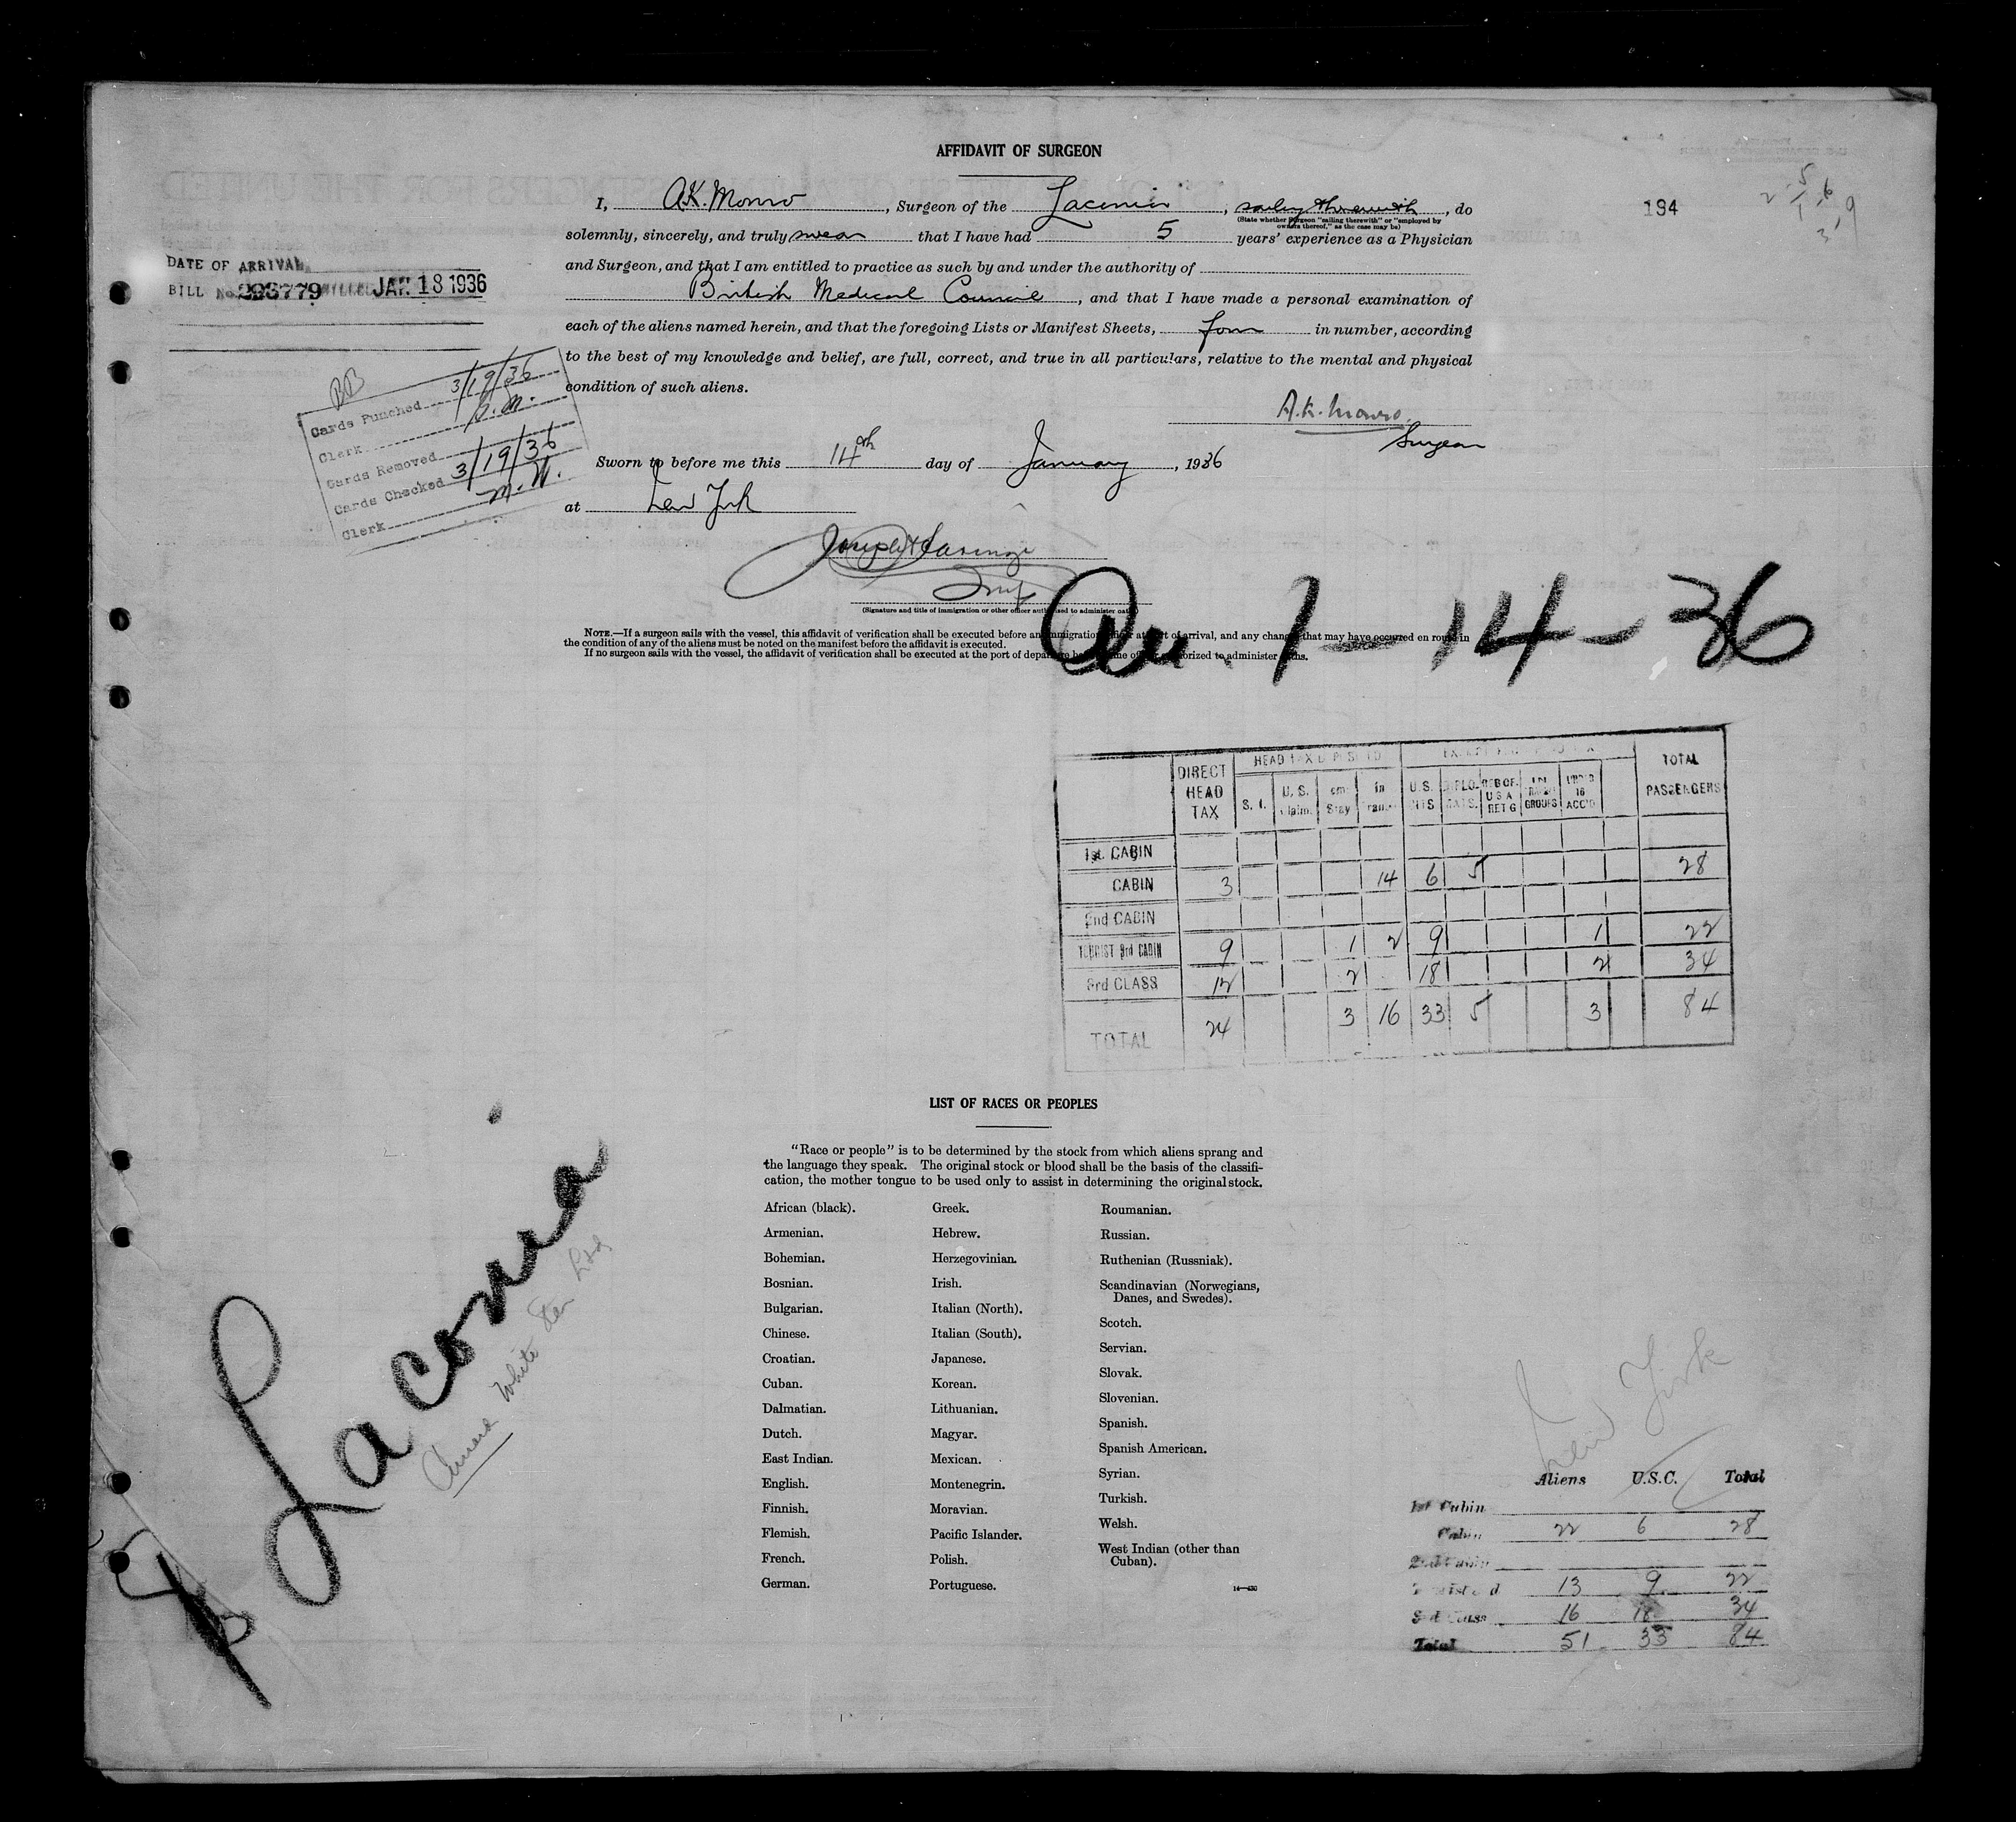 AFFIDAVIT OF SURGEON
I, A.K. Monro, Surgeon of the Laconia, sailing therewith, do
(State whether Surgeon "sailing therewith" or "employed by
owners thereof," as the case may be)
194
solemnly, sincerely, and truly swear that I have had 5 years' experience as a Physician
and Surgeon, and that I am entitled to practice as such by and under the authority of
British Medical Council, and that I have made a personal examination of
each of the aliens named herein, and that the foregoing Lists or Manifest Sheets, four in number, according
to the best of my knowledge and belief, are full, correct, and true in all particulars, relative to the mental and physical
condition of such aliens.
A.K. Monro
Surgeon
Sworn to before me this 14th day of January, 1936
at New York
(Signature and title of immigration or other officer authorized to administer oaths)
NOTE.—If a surgeon sails with the vessel, this affidavit of verification shall be executed before an immigration officer at port of arrival, and any changes that may have occurred en route in
the condition of any of the aliens must be noted on the manifest before the affidavit is executed.
If no surgeon sails with the vessel, the affidavit of verification shall be executed at the port of departure before some officer authorized to administer oaths.
DATE OF ARRIVAL
BILL No. JAN 18 1936
BB
Cards Punched 3/19/36
Clerk
Cards Removed
Cards Checked 3/19/36
Clerk M.W.
1-14-36
DIRECT HEAD TAX
HEAD TAX DEPOSITED
TOTAL PASSENGERS
S. I. U. S. Claim U.S.
1st. CABIN
CABIN 3 14 6 5 28
2nd CABIN
TOURIST 3rd CABIN 9 1 2 9 1 22
3rd CLASS 12 2 18 2 34
TOTAL 24 3 16 33 5 3 84
LIST OF RACES OR PEOPLES
"Race or people" is to be determined by the stock from which aliens sprang and
the language they speak. The original stock or blood shall be the basis of the classifi-
cation, the mother tongue to be used only to assist in determining the original stock.
African (black).
Armenian.
Bohemian.
Bosnian.
Bulgarian.
Chinese.
Croatian.
Cuban.
Dalmatian.
Dutch.
East Indian.
English.
Finnish.
Flemish.
French.
German.
Greek.
Hebrew.
Herzegovinian.
Irish.
Italian (North).
Italian (South).
Japanese.
Korean.
Lithuanian.
Magyar.
Mexican.
Montenegrin.
Moravian.
Pacific Islander.
Polish.
Portuguese.
Roumanian.
Russian.
Ruthenian (Russniak).
Scandinavian (Norwegians,
Danes, and Swedes).
Scotch.
Servian.
Slovak.
Slovenian.
Spanish.
Spanish American.
Syrian.
Turkish.
Welsh.
West Indian (other than
Cuban).
Laconia
Cunard White Star Ltd
New York
Aliens U.S.C. Total
1st Cabin
Cabin 22 6 28
2nd Cabin
Tourist 3rd 13 9 22
3rd Class 16 18 34
Total 51 33 84